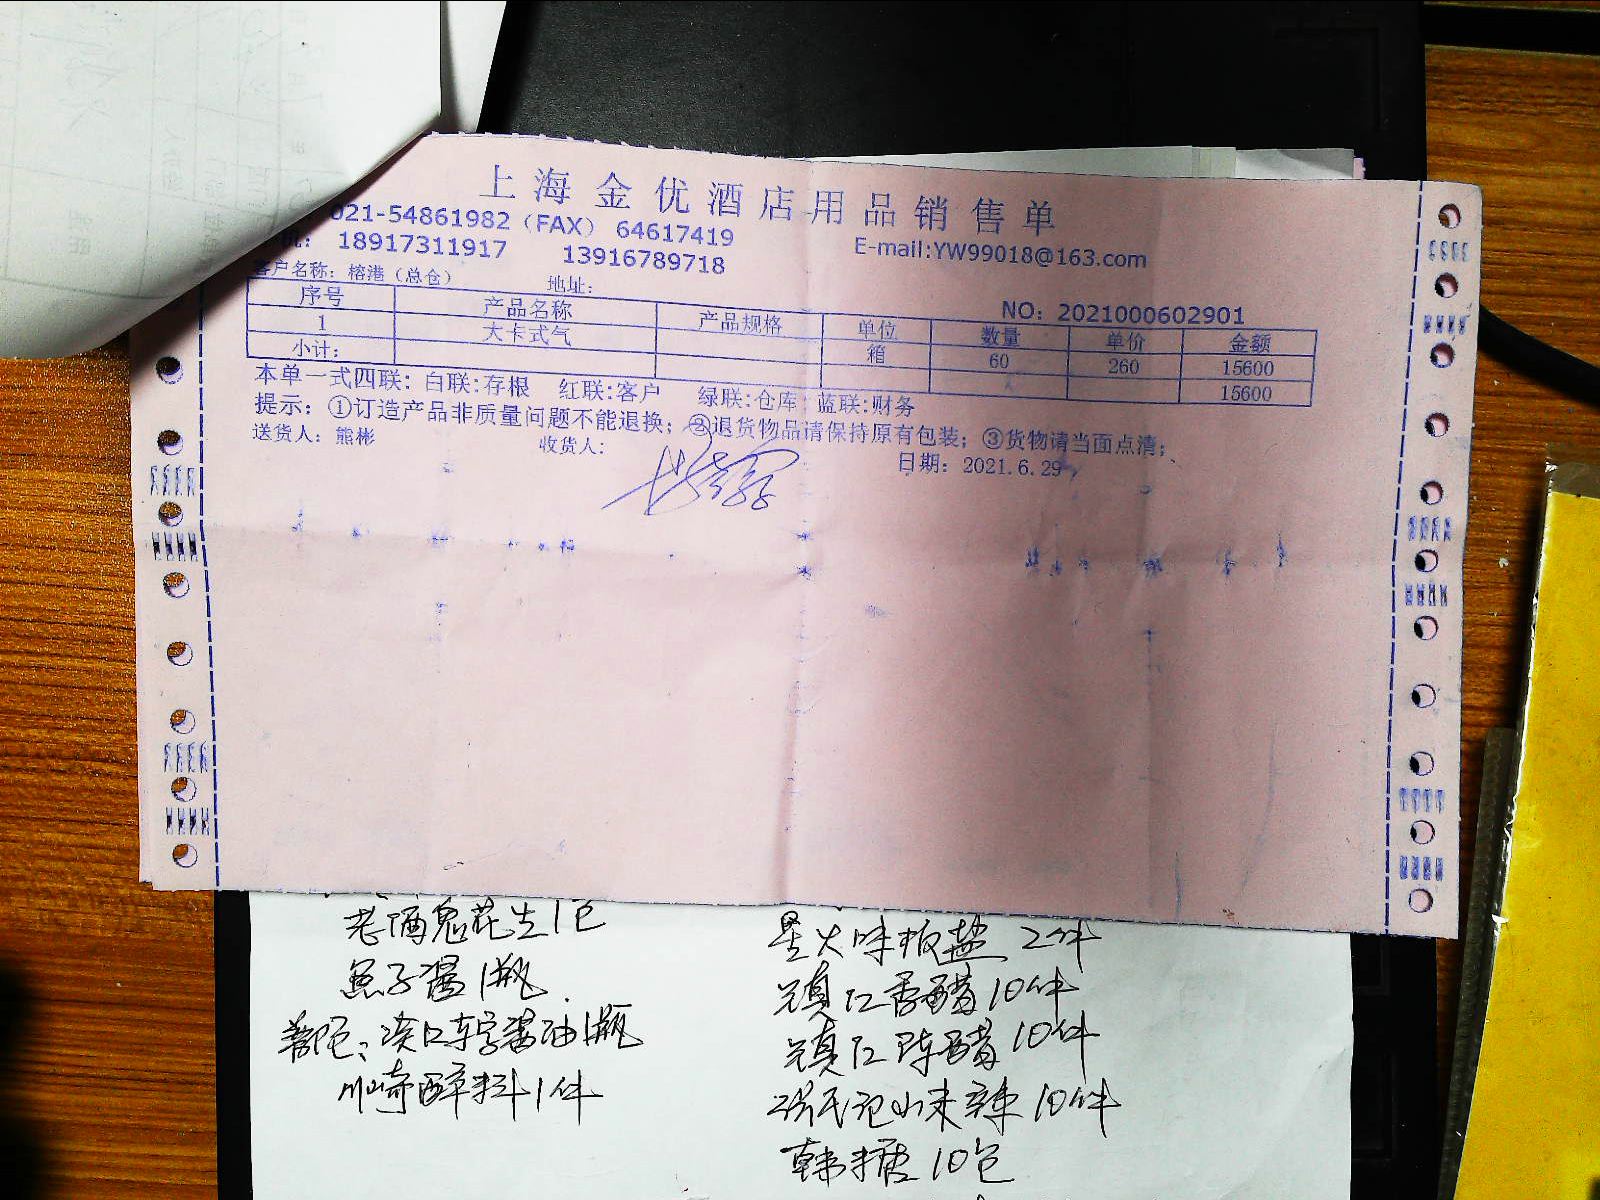 上海金优酒店用品销售单
021-54861982（FAX）64617419
机： 18917311917 13916789718 E-mail:YW99018@163.com
客户名称：榕港（总仓） 地址： NO：2021000602901
序号 产品名称 产品规格 单位 数量 单价 金额
1 大卡式气 箱 60 260 15600
小计： 15600
本单一式四联：白联:存根 红联:客户 绿联:仓库 蓝联:财务
提示：①订造产品非质量问题不能退换；②退货物品请保持原有包装；③货物请当面点清；
送货人：熊彬 收货人： 日期：2021.6.29
老酒鬼花生1包
鱼子酱1瓶
淡口 酱油1瓶
川崎醉料1件
味板盐 2件
镇江香醋10件
镇江陈醋10件
10件
韩糖10包